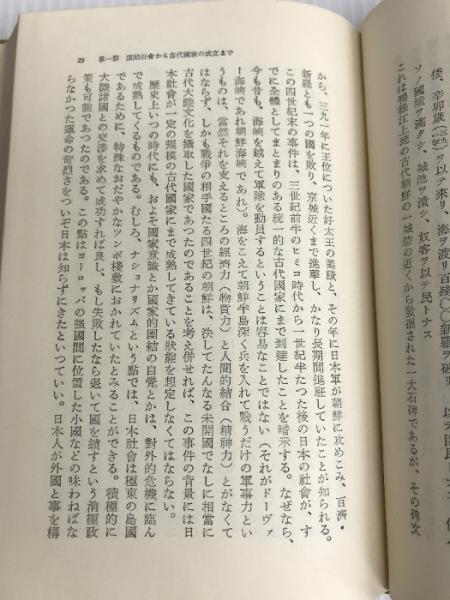 29　第一部　原始社會から古代國家の成立まで
倭、辛卯歳(三九一年)ヲ以テ來リ、海ヲ渡リ百殘〇〇新羅ヲ破リ
ソノ國境ヲ滿タシ、城池ヲ潰シ、奴客ヲ以テ民トナス
これは鴨綠江上流の古代朝鮮の一城砦の近くから發掘された一大石碑であるが、その碑文
から、三九一年に王位についた好太王の業績と、その年に日本軍が朝鮮に攻めこみ、百濟・
新羅とも一つの國を敗り、京城近くまで進擊し、かなり長期間進駐していたことが知られる。
この四世紀末の事件は、三世紀前半のヒミコ時代から一世紀半たつた後の日本の社會が、す
でに全體としてまとまりのある統一的な古代國家にまで到達したことを暗示する。なぜなら、
今も昔も、海峽を越えて軍隊を動員するということは容易なことではない(それがドーヴァ
ー海峽であれ朝鮮海峽であれ)。海をこえて朝鮮半島深く兵を入れて戰うだけの軍事力とい
うものは、當然それを支えるところの經濟力(物質力)と人間的結合(精神力)とがなくて
はならず、しかも戰爭の相手國たる四世紀の朝鮮は、決してたんなる未開國でなしに相當に
古代大陸文化を攝取した國家であつたのであることを考え併せれば、この事件の背景には日
本社會が一定の規模の古代國家にまで成熟してきている狀態を想定しなくてはならない。
歷史上いつの時代にも、およそ國家意識とか國家的團結の自覺とかは、對外的危機に臨ん
で成熟してくるものである。むしろ、ナショナリズムという點では、日本社會は極東の島國
であるために、特殊なおだやかなツンボ棧敷におかれていたとみることができる。積極的に
大陸諸國との交渉を求めて成功すれば良し、もし失敗したなら退いて國を鎖すという消極政
策も可能であつたのである。この點はヨーロッパの强國間に位置した小國などの味わねばな
らなかつた運命の苛烈さをついぞ日本は知らずにきたといつていい。日本人が外國と事を構